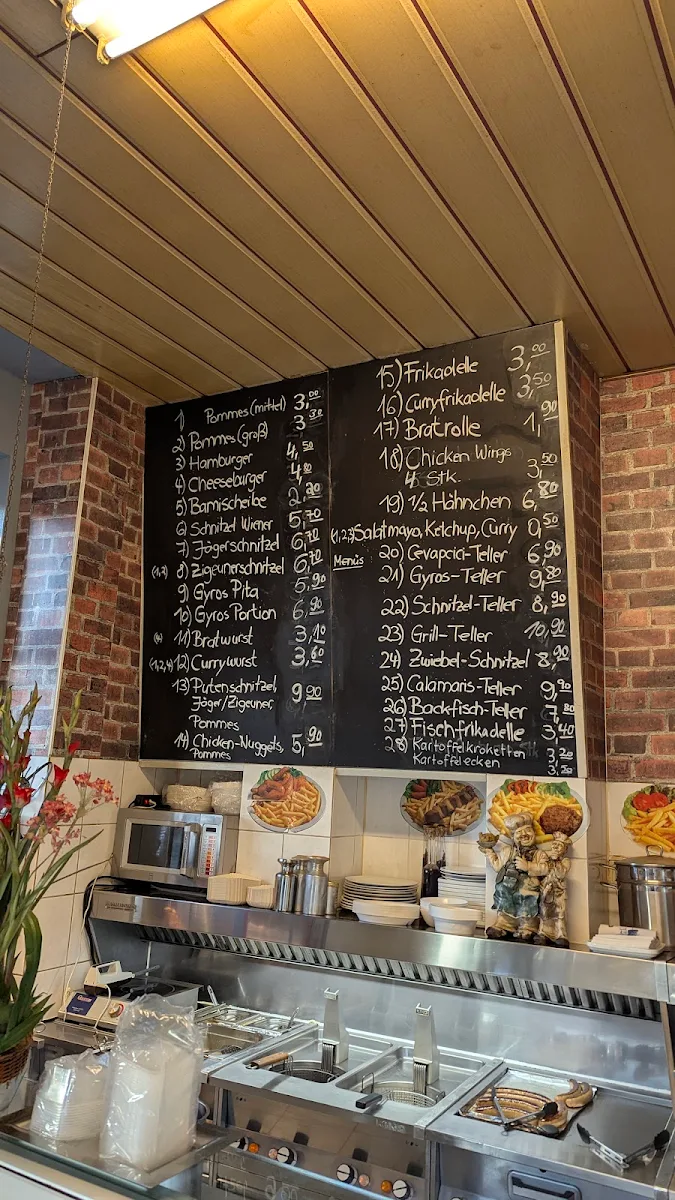 1) Pommes (mittel) 3,00
2) Pommes (groß) 3,30
3) Hamburger 4,50
4) Cheeseburger 4,80
5) Bamischeibe 2,20
6) Schnitzel Wiener 5,70
7) Jägerschnitzel 6,70
(1,7) 8) Zigeunerschnitzel 6,70
9) Gyros Pita 5,90
10) Gyros Portion 6,90
11) Bratwurst 3,10
(1,2,4) 12) Currywurst 3,60
13) Putenschnitzel, 9,90
Jäger/Zigeuner,
Pommes
14) Chicken-Nuggets, 5,90
Pommes
15) Frikadelle 3,00
16) Curryfrikadelle 3,50
17) Bratrolle 1,90
18) Chicken Wings
4 Stk. 3,50
19) 1/2 Hähnchen 6,80
(1,2,7) Salatmayo, Ketchup, Curry 0,50
Menüs
20) Cevapcici-Teller 6,90
21) Gyros-Teller 9,80
22) Schnitzel-Teller 8,90
23) Grill-Teller 10,90
24) Zwiebel-Schnitzel 8,90
25) Calamaris-Teller 9,90
26) Backfisch-Teller 7,80
27) Fischfrikadelle 3,40
28) Kartoffelkroketten 3,20
Kartoffelecken 3,50